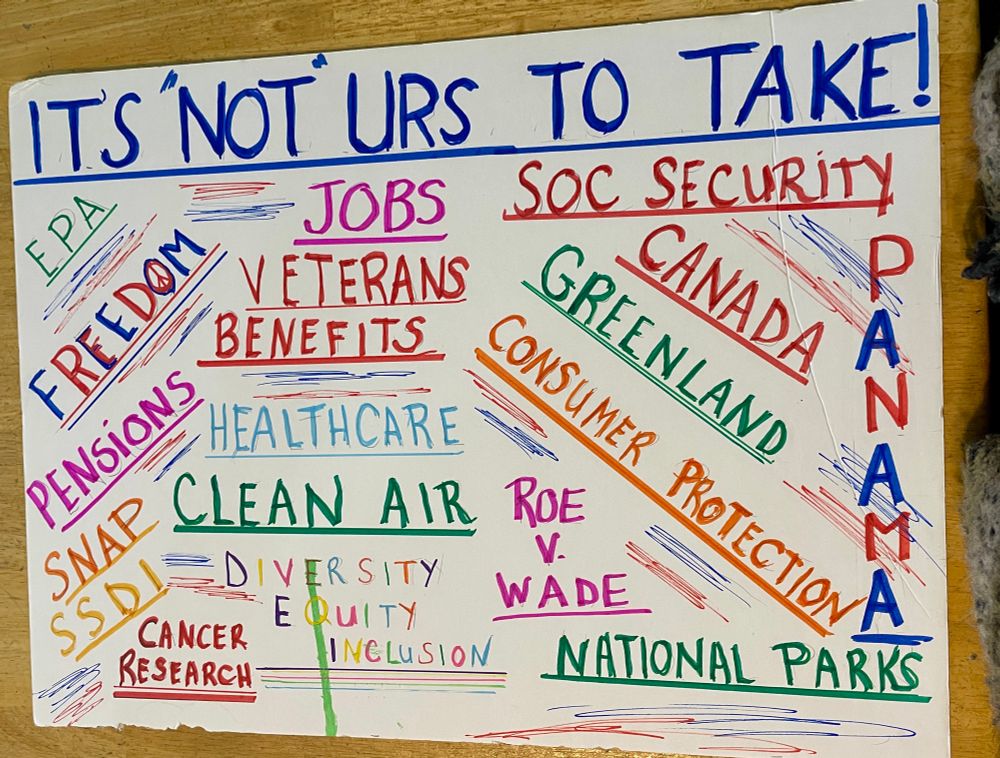 IT'S "NOT" URS TO TAKE!
EPA
FREEDOM
PENSIONS
SNAP
SSDI
JOBS
VETERANS
BENEFITS
HEALTHCARE
CLEAN AIR
DIVERSITY
EQUITY
INCLUSION
CANCER
RESEARCH
SOC SECURITY
CANADA
GREENLAND
CONSUMER PROTECTION
ROE
V.
WADE
NATIONAL PARKS
PANAMA